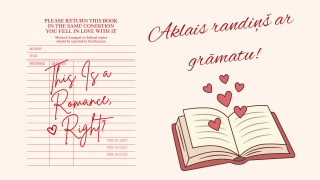 PLEASE RETURN THIS BOOK
IN THE SAME CONDITION
YOU FELL IN LOVE WITH IT
Marked, damaged or defaced copies
should be reported to the librarian
AUTHOR
TITLE
RETURNED
This Is a
Romance,
Right?
Aklais randiņš ar
grāmatu!